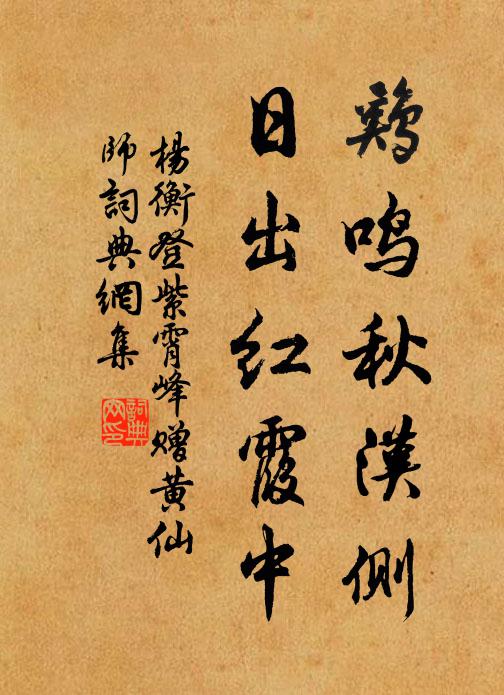 鷄鳴秋漢側
日出紅霞中
楊衡登紫霄峰贈黄仙
師詞典網集
詞典
網印